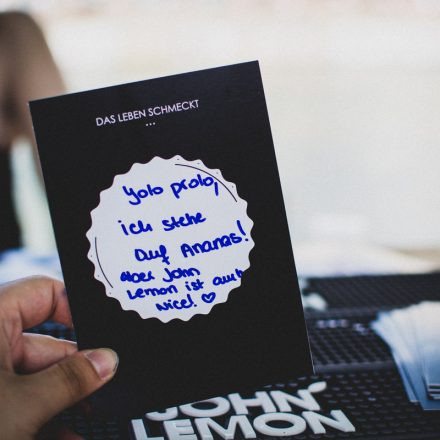 DAS LEBEN SCHMECKT
...
Yolo prolo,
ich stehe
auf Ananas!
Aber John
Lemon ist auch
nice! ♡
JOHN
LEMON